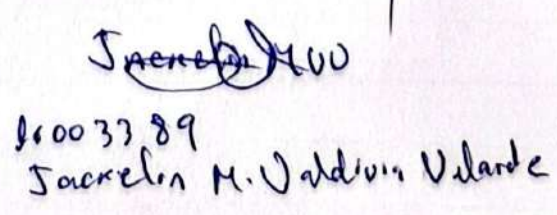 Jackelin MVV
16003389
Jackelin M. Valdivia Velarde